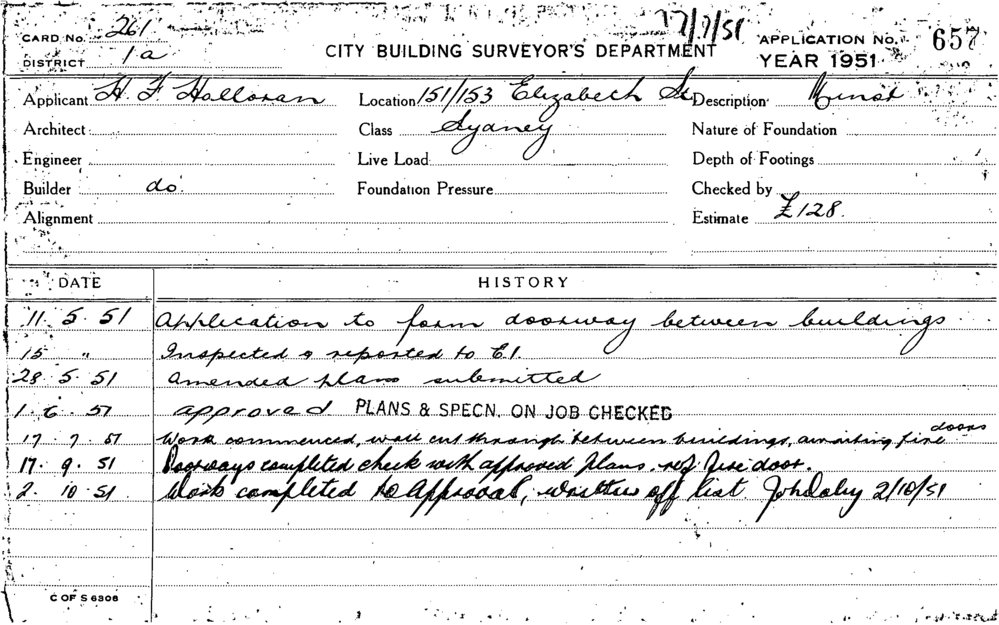 17/7/51
CARD No. 261
DISTRICT 1a
CITY BUILDING SURVEYOR'S DEPARTMENT
APPLICATION No. 657
YEAR 1951
Applicant H. F Halloran Location 151/153 Elizabeth St Description Minor
Architect Class Sydney Nature of Foundation
Engineer Live Load Depth of Footings
Builder do. Foundation Pressure Checked by
Alignment Estimate £128.
DATE HISTORY
11. 5. 51 Application to form doorway between buildings
15 " Inspected & reported to E.I.
28. 5. 51 Amended plans submitted
1. 6. 51 approved PLANS & SPECN. ON JOB CHECKED
17. 7. 51 Work commenced, wall cut through between buildings, awaiting fire doors
17. 9. 51 Doorways completed check with approved plans. ref fire door.
2. 10. 51 Work completed to approval, written off list 2/10/51
C OF S 6306